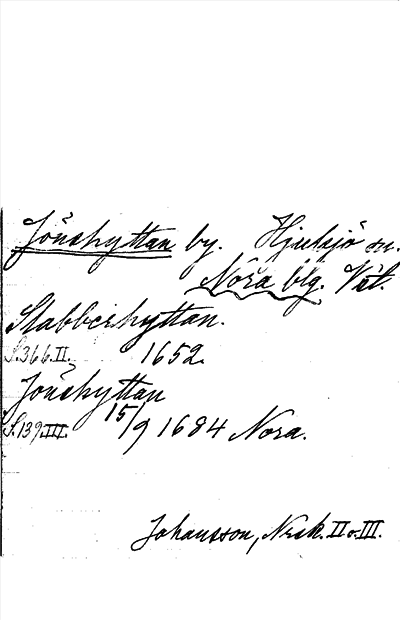 Jönshyttan by. Hjulsjö sn.
Nora blg. Vstl.
Stabbershyttan.
S.366.II. 1652.
Jönshyttan
S.139.III. 15/9 1684 Nora.
Johansson, Nrsk. II o. III.